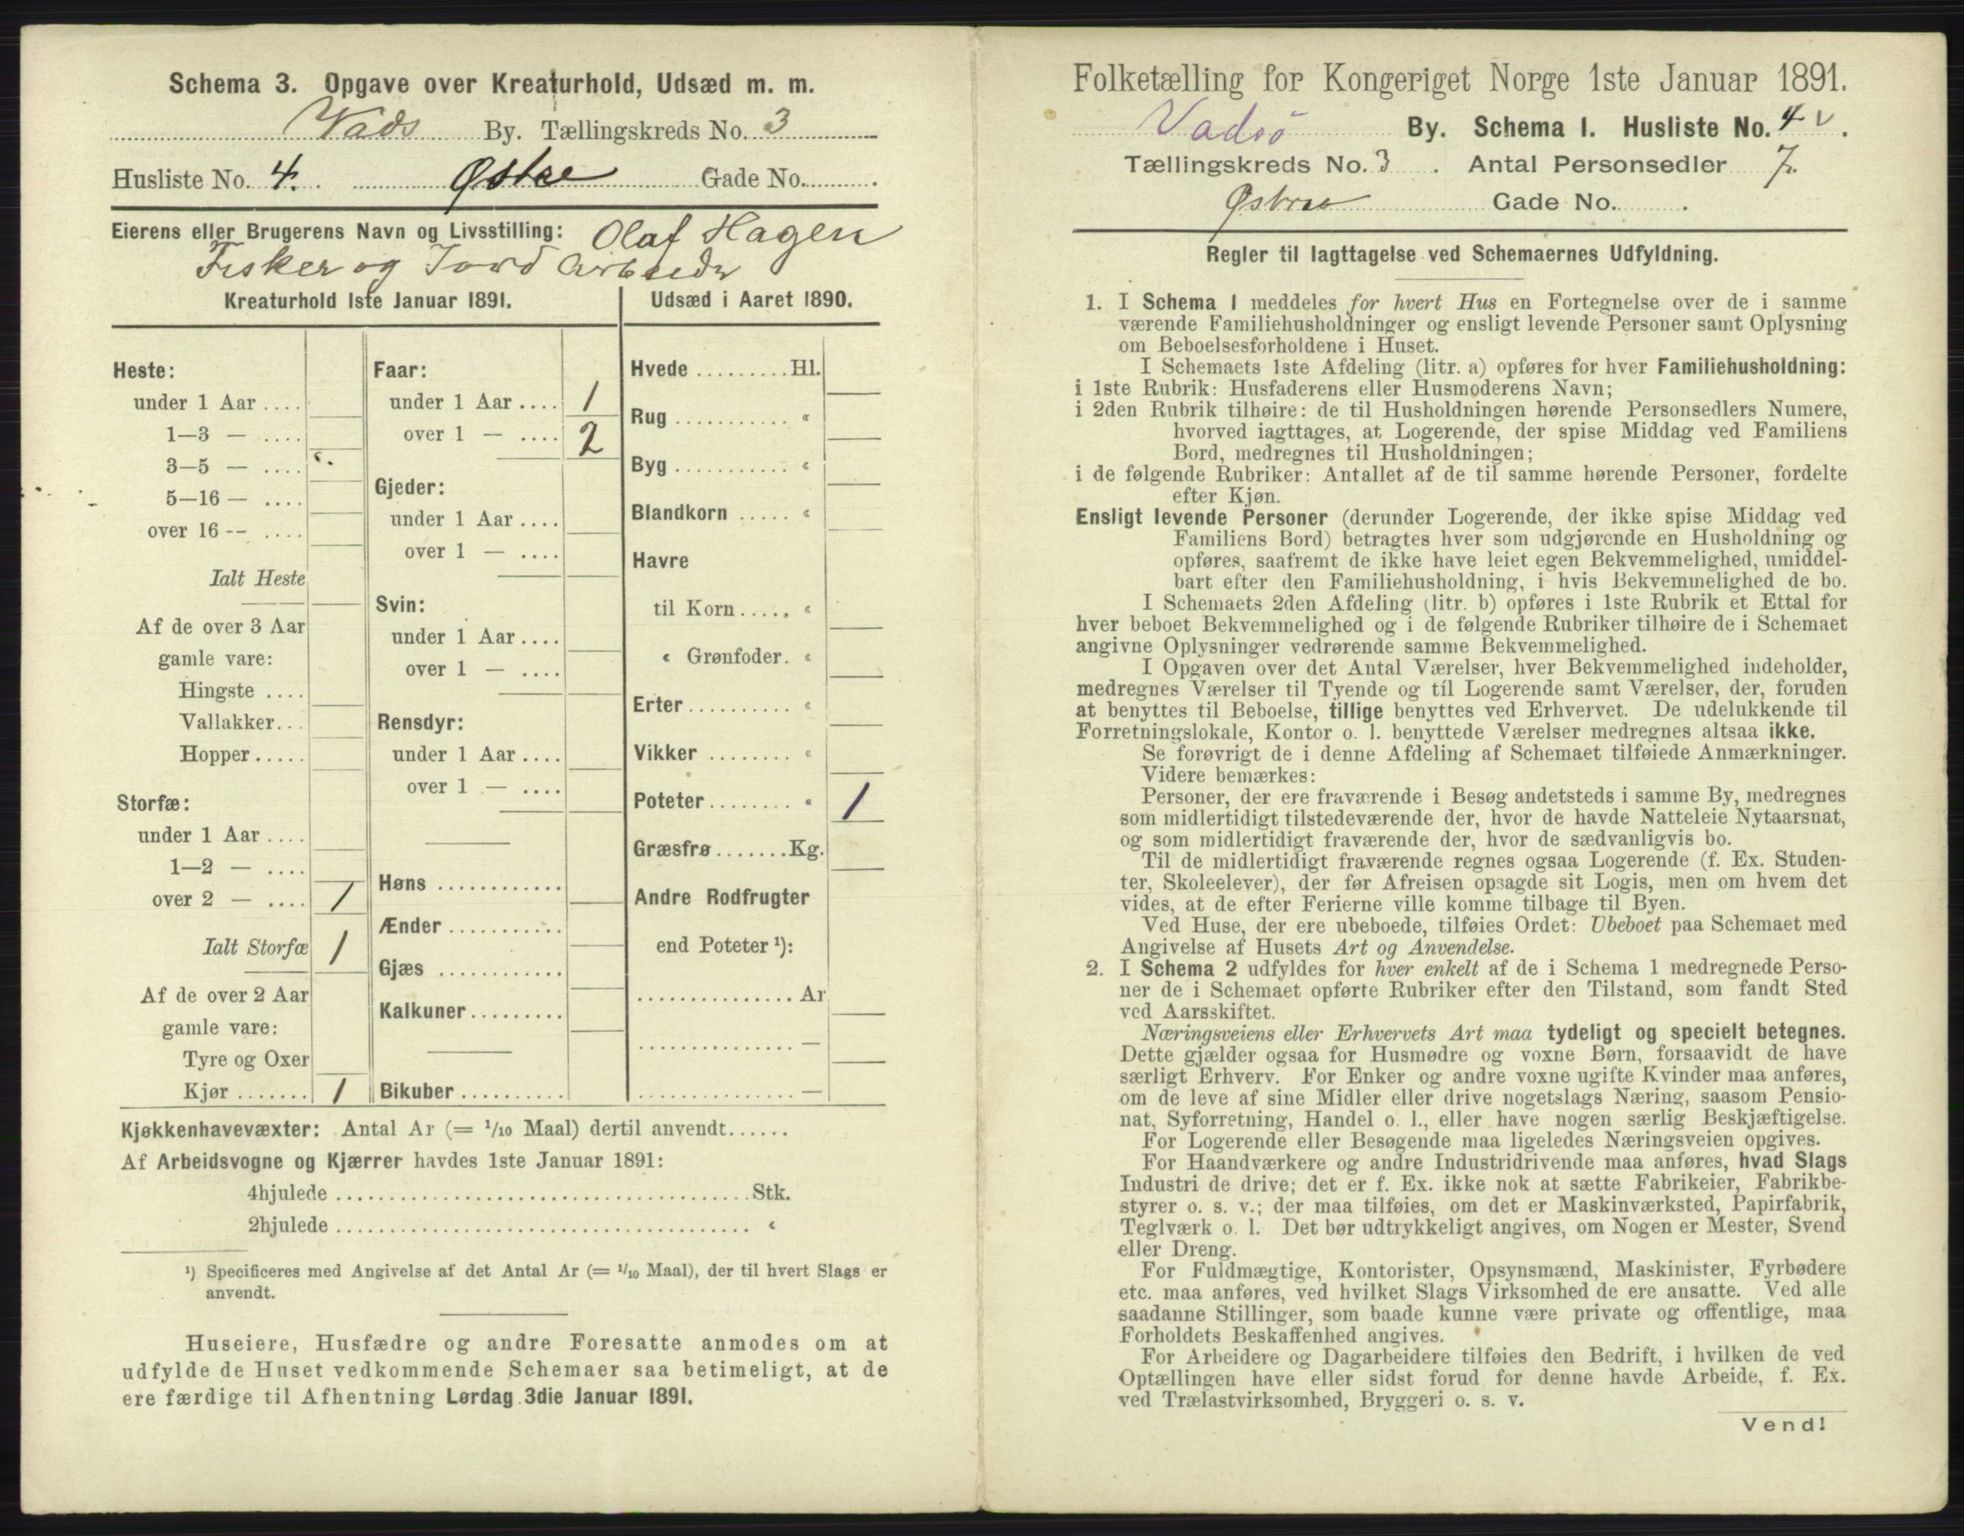 Schema 3. Opgave over Kreaturhold, Udsæd m. m.
Vads By. Tællingskreds No. 3
Husliste No. 4. Østre Gade No.
Eierens eller Brugerens Navn og Livsstilling: Olaf Hagen
Fisker og Jord Arbeider
Kreaturhold 1ste Januar 1891.
Heste:
under 1 Aar ....
1—3 — ....
3—5 — ....
5—16 — ....
over 16 — ....
Ialt Heste
Af de over 3 Aar
gamle vare:
Hingste ....
Vallakker...
Hopper.....
Storfæ:
under 1 Aar ....
1—2 — ....
over 2 — .... 1
Ialt Storfæ 1
Af de over 2 Aar
gamle vare:
Tyre og Oxer
Kjør ....... 1
Faar:
under 1 Aar .... 1
over 1 — .... 2
Gjeder:
under 1 Aar ....
over 1 — ....
Svin:
under 1 Aar ....
over 1 — ....
Rensdyr:
under 1 Aar ....
over 1 — ....
Høns ............
Ænder ...........
Gjæs ............
Kalkuner.........
Bikuber ..........
Udsæd i Aaret 1890.
Hvede ......... Hl.
Rug ........... «
Byg ........... «
Blandkorn ..... «
Havre
til Korn ..... «
« Grønfoder. «
Erter.......... «
Vikker ........ «
Poteter........ « 1
Græsfrø.......Kg.
Andre Rodfrugter
end Poteter ¹):
............... Ar
............... —
............... —
Kjøkkenhavevæxter: Antal Ar (= 1/10 Maal) dertil anvendt......
Af Arbeidsvogne og Kjærrer havdes 1ste Januar 1891:
4hjulede ........................................ Stk.
2hjulede ........................................ «
¹) Specificeres med Angivelse af det Antal Ar (= 1/10 Maal), der til hvert Slags er
anvendt.
Huseiere, Husfædre og andre Foresatte anmodes om at
udfylde de Huset vedkommende Schemaer saa betimeligt, at de
ere færdige til Afhentning Lørdag 3die Januar 1891.
Folketælling for Kongeriget Norge 1ste Januar 1891.
Vadsö By. Schema 1. Husliste No. 4 v.
Tællingskreds No. 3. Antal Personsedler 7.
Østre Gade No. .
Regler til Iagttagelse ved Schemaernes Udfyldning.
1. I Schema 1 meddeles for hvert Hus en Fortegnelse over de i samme
værende Familiehusholdninger og ensligt levende Personer samt Oplysning
om Beboelsesforholdene i Huset.
I Schemaets 1ste Afdeling (litr. a) opføres for hver Familiehusholdning:
i 1ste Rubrik: Husfaderens eller Husmoderens Navn;
i 2den Rubrik tilhøire: de til Husholdningen hørende Personsedlers Numere,
hvorved iagttages, at Logerende, der spise Middag ved Familiens
Bord, medregnes til Husholdningen;
i de følgende Rubriker: Antallet af de til samme hørende Personer, fordelte
efter Kjøn.
Ensligt levende Personer (derunder Logerende, der ikke spise Middag ved
Familiens Bord) betragtes hver som udgjørende en Husholdning og
opføres, saafremt de ikke have leiet egen Bekvemmelighed, umiddel-
bart efter den Familiehusholdning, i hvis Bekvemmelighed de bo.
I Schemaets 2den Afdeling (litr. b) opføres i 1ste Rubrik et Ettal for
hver beboet Bekvemmelighed og i de følgende Rubriker tilhøire de i Schemaet
angivne Oplysninger vedrørende samme Bekvemmelighed.
I Opgaven over det Antal Værelser, hver Bekvemmelighed indeholder,
medregnes Værelser til Tyende og til Logerende samt Værelser, der, foruden
at benyttes til Beboelse, tillige benyttes ved Erhvervet. De udelukkende til
Forretningslokale, Kontor o. l. benyttede Værelser medregnes altsaa ikke.
Se forøvrigt de i denne Afdeling af Schemaet tilføiede Anmærkninger.
Videre bemærkes:
Personer, der ere fraværende i Besøg andetsteds i samme By, medregnes
som midlertidigt tilstedeværende der, hvor de havde Natteleie Nytaarsnat,
og som midlertidigt fraværende der, hvor de sædvanligvis bo.
Til de midlertidigt fraværende regnes ogsaa Logerende (f. Ex. Studen-
ter, Skoleelever), der før Afreisen opsagde sit Logis, men om hvem det
vides, at de efter Ferierne ville komme tilbage til Byen.
Ved Huse, der ere ubeboede, tilføies Ordet: Ubeboet paa Schemaet med
Angivelse af Husets Art og Anvendelse.
2. I Schema 2 udfyldes for hver enkelt af de i Schema 1 medregnede Perso-
ner de i Schemaet opførte Rubriker efter den Tilstand, som fandt Sted
ved Aarsskiftet.
Næringsveiens eller Erhvervets Art maa tydeligt og specielt betegnes.
Dette gjælder ogsaa for Husmødre og voxne Børn, forsaavidt de have
særligt Erhverv. For Enker og andre voxne ugifte Kvinder maa anføres,
om de leve af sine Midler eller drive nogetslags Næring, saasom Pensio-
nat, Syforretning, Handel o. l., eller have nogen særlig Beskjæftigelse.
For Logerende eller Besøgende maa ligeledes Næringsveien opgives.
For Haandværkere og andre Industridrivende maa anføres, hvad Slags
Industri de drive; det er f. Ex. ikke nok at sætte Fabrikeier, Fabrikbe-
styrer o. s. v.; der maa tilføies, om det er Maskinværksted, Papirfabrik,
Teglværk o. l. Det bør udtrykkeligt angives, om Nogen er Mester, Svend
eller Dreng.
For Fuldmægtige, Kontorister, Opsynsmænd, Maskinister, Fyrbødere
etc. maa anføres, ved hvilket Slags Virksomhed de ere ansatte. Ved alle
saadanne Stillinger, som baade kunne være private og offentlige, maa
Forholdets Beskaffenhed angives.
For Arbeidere og Dagarbeidere tilføies den Bedrift, i hvilken de ved
Optællingen have eller sidst forud for denne havde Arbeide, f. Ex.
ved Trælastvirksomhed, Bryggeri o. s. v.
Vend!